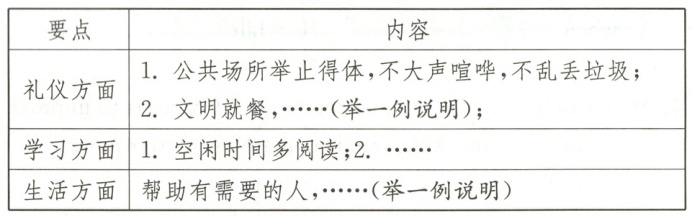 要点 内容
礼仪方面 1. 公共场所举止得体,不大声喧哗,不乱丢垃圾;
2. 文明就餐,……(举一例说明);
学习方面 1. 空闲时间多阅读;2. ……
生活方面 帮助有需要的人,……(举一例说明)